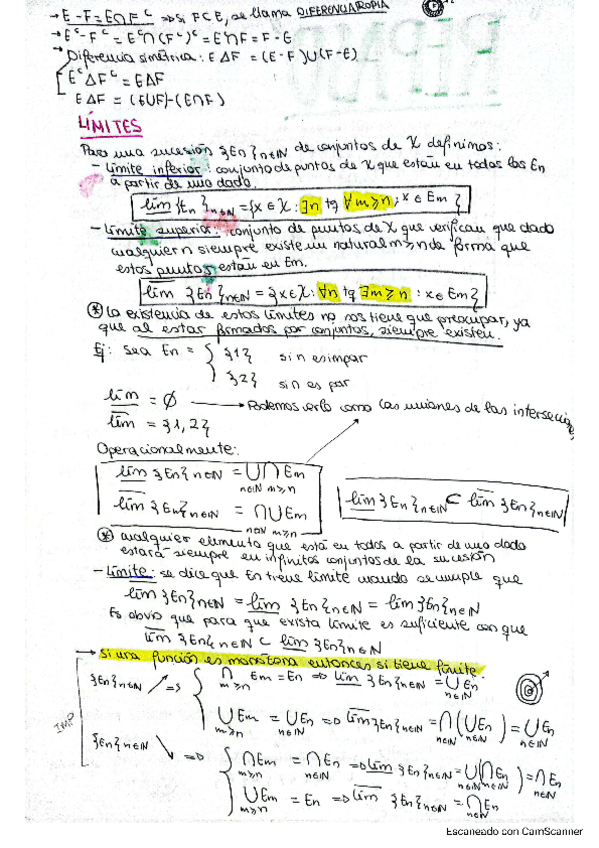 → E-F = E∩F^c ⇒ Si F⊂E, se llama DIFERENCIA PROPIA
→ E^c-F^c = E^c∩(F^c)^c = E^c∩F = F-E
→ Diferencia simétrica: E△F = (E-F)∪(F-E)
E^c△F^c = E△F
E△F = (E∪F)-(E∩F)
LÍMITES
Para una sucesión {En}n∈ℕ de conjuntos de X definimos:
- Límite inferior: conjunto de puntos de X que están en todos los En
a partir de uno dado.
lim {En}n∈ℕ = {x∈X: ∃n tq ∀m≥n; x∈Em}
- Límite superior: conjunto de puntos de X que verifican que dado
cualquier n siempre existe un natural m≥n de forma que
estos puntos están en Em.
lim {En}n∈ℕ = {x∈X: ∀n tq ∃m≥n : x∈Em}
* La existencia de estos límites no nos tiene que preocupar, ya
que al estar formados por conjuntos, siempre existen.
Ej: Sea En = { {1} si n es impar
{2} si n es par
lim = ∅ → Podemos verlo como las uniones de las intersecc
lim = {1,2}
Operacionalmente:
lim {En}n∈ℕ = ∪ ∩ Em
n∈ℕ m≥n
lim {En}n∈ℕ ⊂ lim {En}n∈ℕ
lim {En}n∈ℕ = ∩ ∪ Em
n∈ℕ m≥n
* cualquier elemento que está en todos a partir de uno dado
estará siempre en infinitos conjuntos de la sucesión
- Límite: se dice que En tiene límite cuando se cumple que
lim {En}n∈ℕ = lim {En}n∈ℕ = lim {En}n∈ℕ
Es obvio que para que exista límite es suficiente con que
lim {En}n∈ℕ ⊂ lim {En}n∈ℕ
→ Si una función es monótona entonces si tiene límite.
IMP
{En}n∈ℕ ↗ ⇒ { ∩ Em = En ⇒ lim {En}n∈ℕ = ∪ En
m≥n n∈ℕ
∪ Em = ∪ En ⇒ lim {En}n∈ℕ = ∩ (∪ En) = ∪ En
m≥n n∈ℕ n∈ℕ n∈ℕ n∈ℕ
{En}n∈ℕ ↘ ⇒ { ∩ Em = ∩ En ⇒ lim {En}n∈ℕ = ∪ (∩ En) = ∩ En
m≥n n∈ℕ n∈ℕ n∈ℕ n∈ℕ
∪ Em = En ⇒ lim {En}n∈ℕ = ∩ En
m≥n n∈ℕ
Escaneado con CamScanner